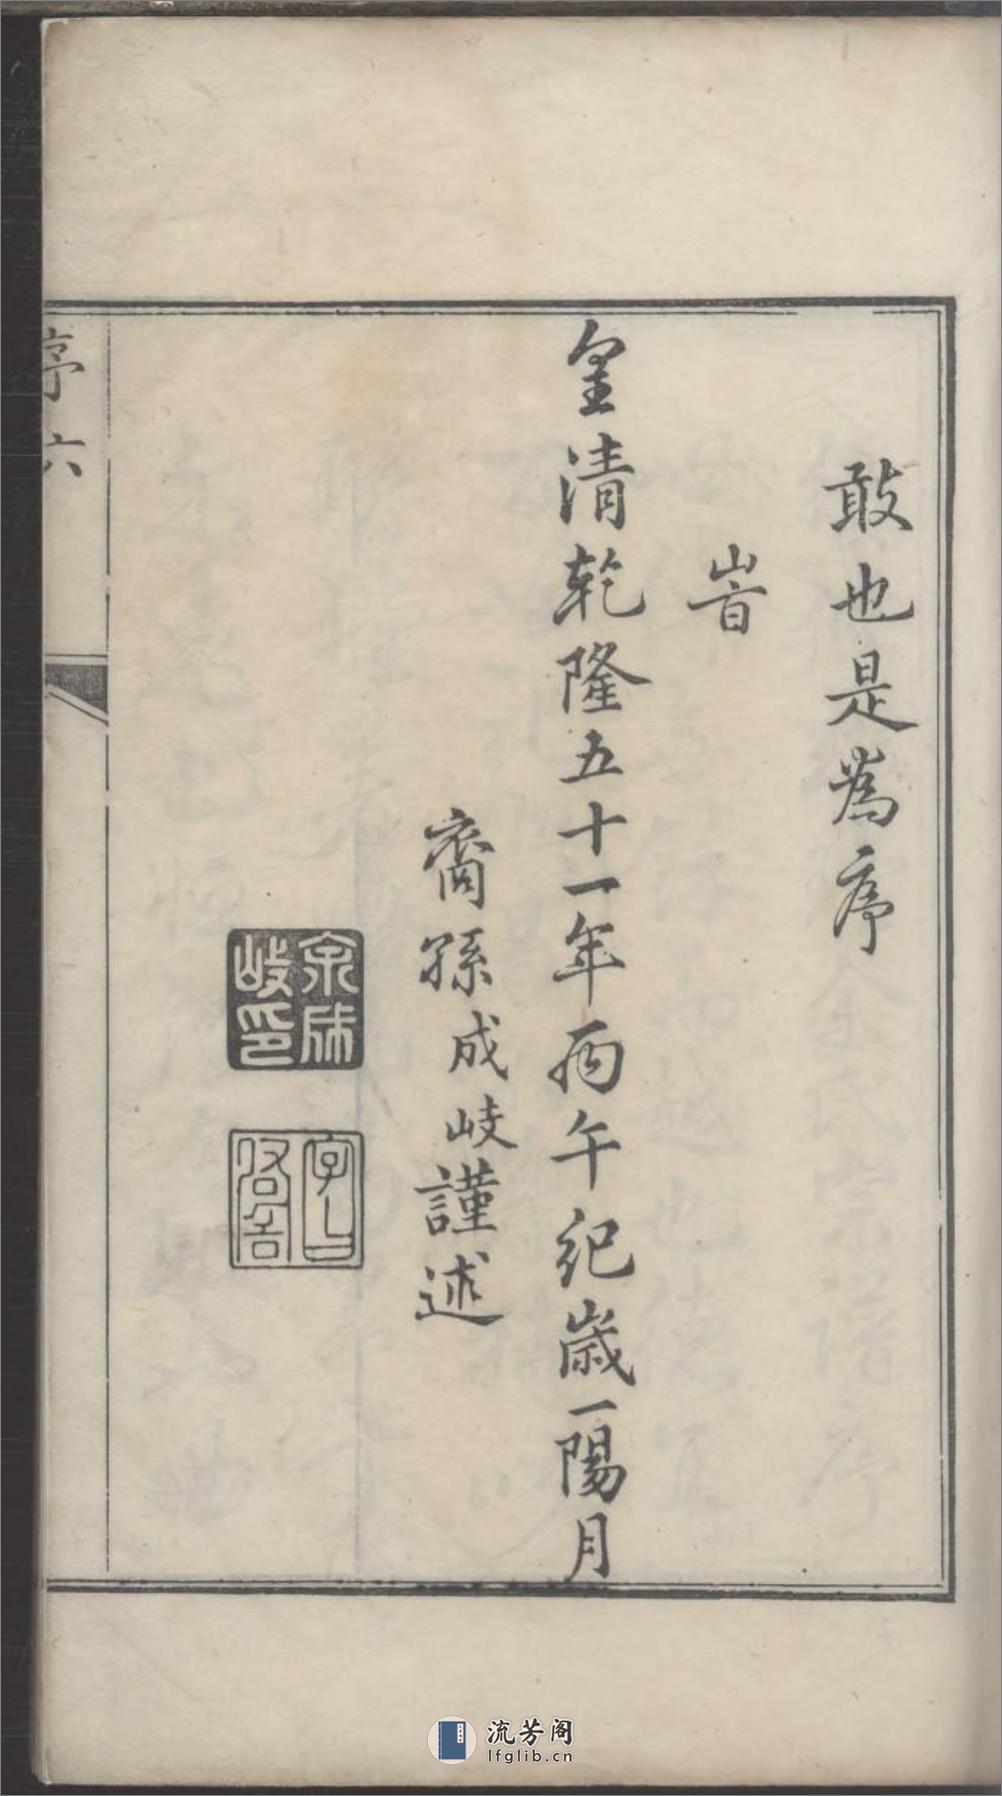 敢也是為序
旹
皇清乾隆五十一年丙午紀歲一陽月
裔孫成岐謹述
余成岐印
序六
流芳阁
lfglib.cn